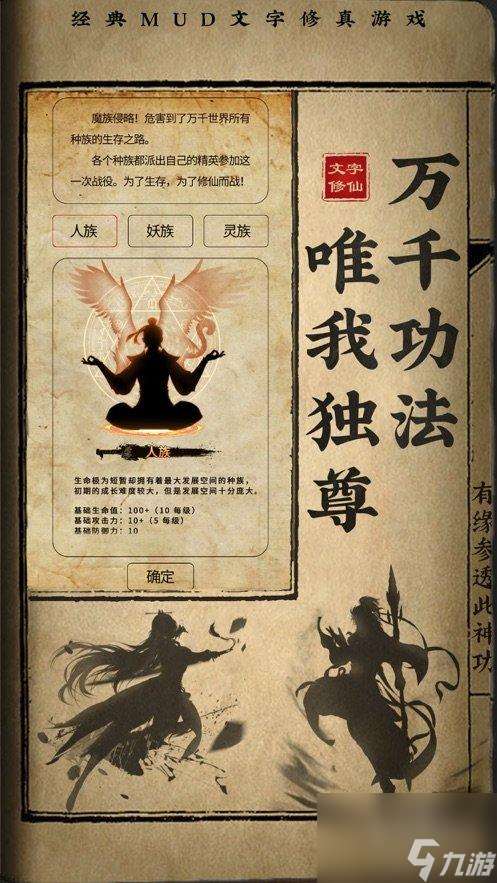 经典MUD文字修真游戏
魔族侵略！危害到了万千世界所有
种族的生存之路。
各个种族都派出自己的精英参加这
一次战役。为了生存，为了修仙而战！
人族
妖族
灵族
人族
生命极为短暂却拥有着最大发展空间的种族，
初期的成长难度较大，但是发展空间十分庞大。
基础生命值：100+（10 每级）
基础攻击力：10+（5 每级）
基础防御力：10
确定
文字
修仙
万千功法
唯我独尊
有缘参透此神功
九游